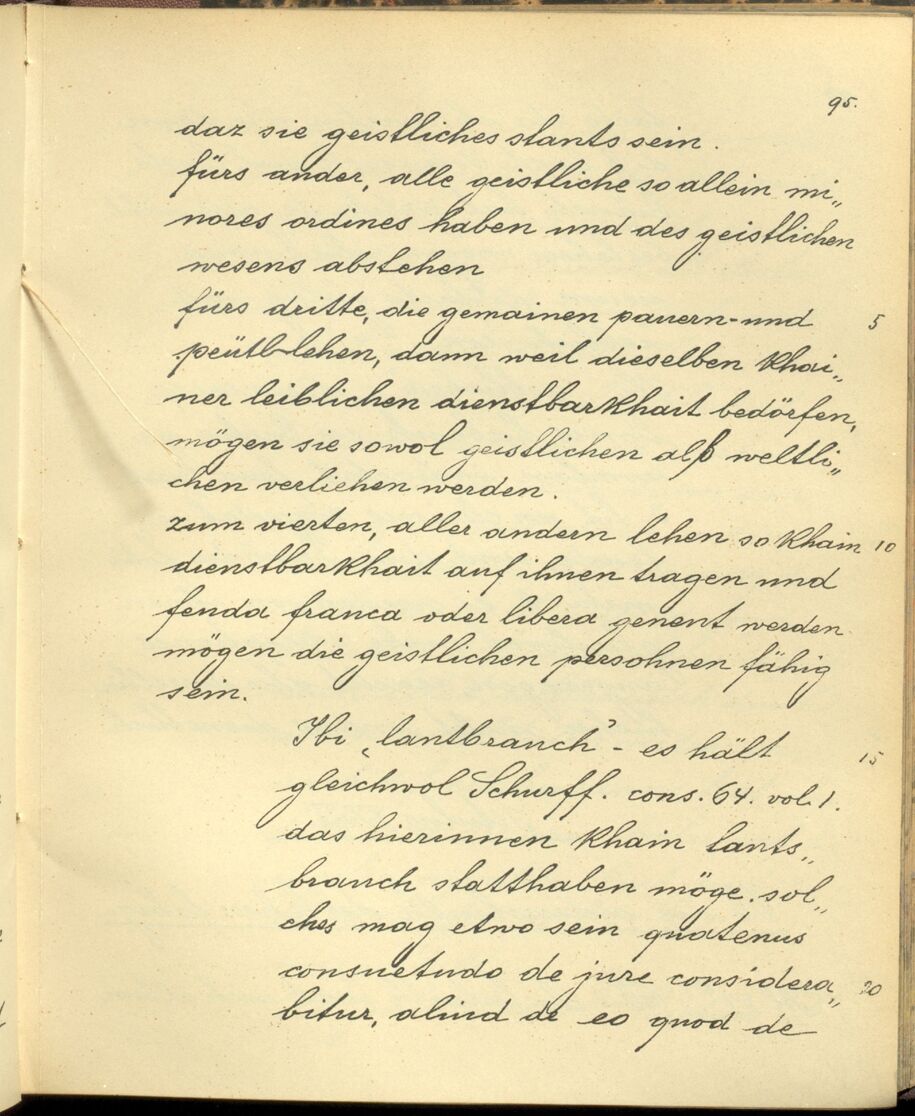 95.
daz sie geistliches stants sein.
fürs ander, alle geistliche so allein mi„
nores ordines haben und des geistlichen
wesens abstehen
fürs dritte, die gemainen pauern- und 5
peütl-lehen, dann weil dieselben khai„
ner leiblichen dienstbarkhait bedörfen,
mögen sie sowol geistlichen alß weltli„
chen verliehen werden.
zum vierten, aller andern lehen so khain 10
dienstbarkhait auf ihnen tragen und
feuda franca oder libera genent werden
mögen die geistlichen persohnen fähig
sein.
Ibi „lantbrauch" - es hält 15
gleichwol Schurff. cons. 64. vol. 1.
das hierinnen khain lants„
brauch statthaben möge. sol„
ches mag etwo sein quatenus
consuetudo de jure considera„ 20
bitur, aliud de eo quod de